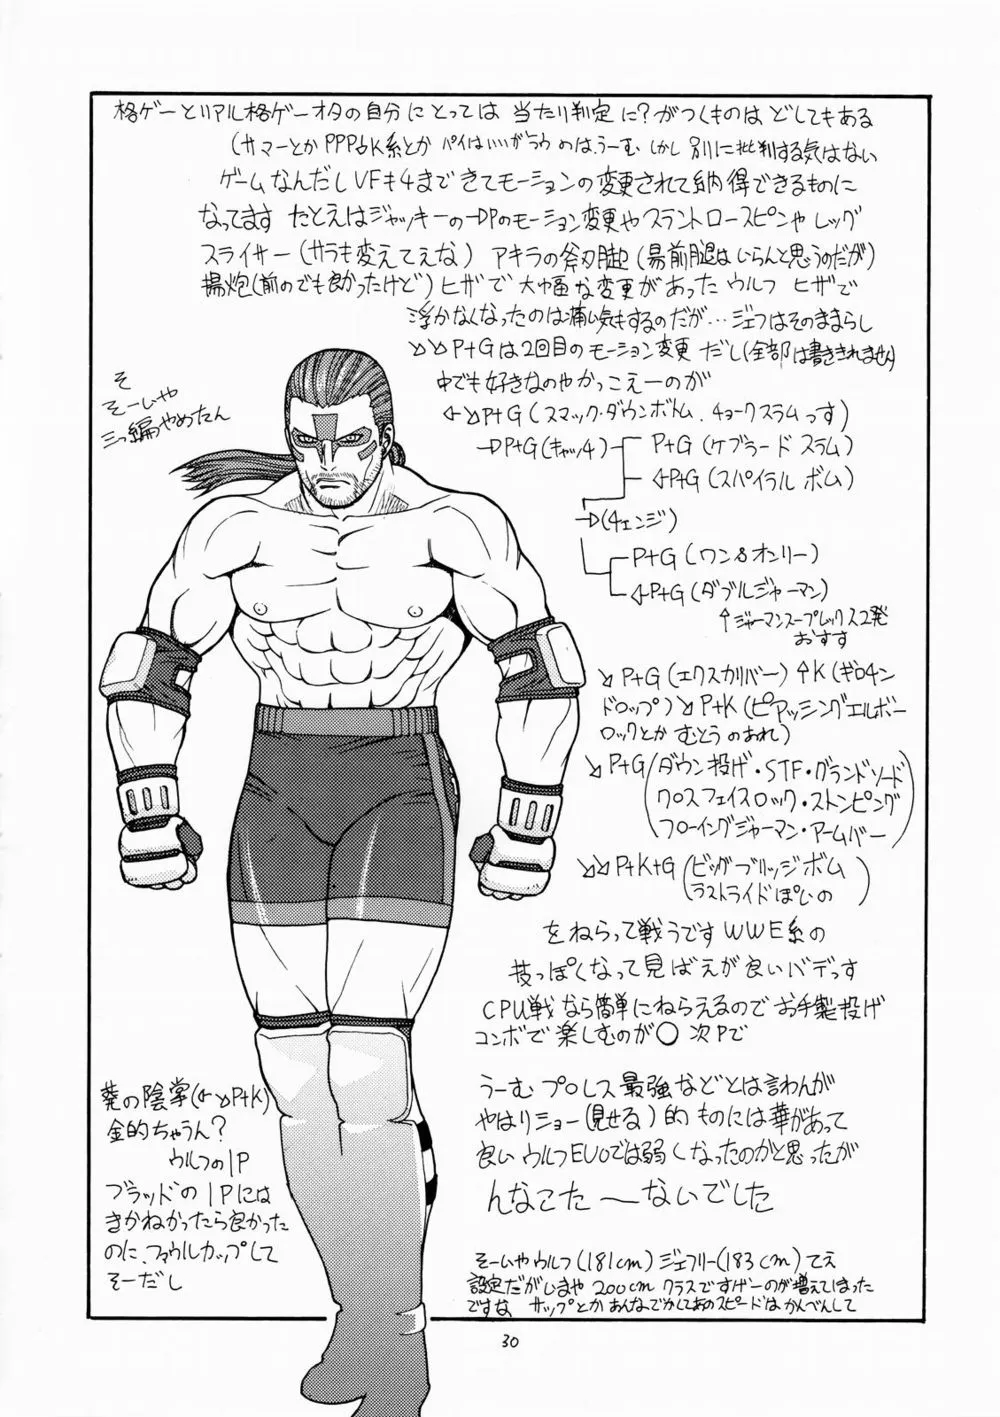 格ゲーとリアル格ゲーオタの自分にとっては 当たり判定に?がつくものは どしてもある
(サマーとか PPP△K系とか パイはいいがラウのは、うーむ しかし 別に批判する気はない
ゲームなんだし VFも4まできてモーションの変更されて納得できるものに
なってます たとえばジャッキーの→Pのモーション変更や スラントロースピンや レッグ
スライサー(サラも変えてえな) アキラの斧刃脚(昜前腿はしらんと思うのだが)
揚炮(前のでも良かったけど) ヒザで 大幅な変更があった ウルフ ヒザで
浮かなくなったのは痛い気もするのだが… ジェフはそのままらし
↘↘P+Gは2回目のモーション変更 だし(全部は書ききれません)
中でも好きなのやかっこえーのが
←↘P+G(スマック・ダウンボトム、チョークスラムっす)
→P+G(キャッチ) P+G(ケブラードスラム)
←P+G(スパイラルボム)
→(チェンジ)
P+G(ワン&オンリー)
←P+G(ダブルジャーマン)
↑ジャーマンスープレックス2発
おすす
↘P+G(エクスカリバー) ↑K(ギロチン
ドロップ) ↘P+K(ピアッシングエルボー
ロックとか むとうのあれ)
↘P+G(ダウン投げ・STF・グランドソード
クロスフェイスロック・ストンピング
フローイングジャーマン・アームバー)
↘↘P+K+G(ビッグブリッジボム
ラストライドぽいの)
をねらって戦うです WWE系の
技っぽくなって見ばえが良いバデっす
CPU戦なら簡単にねらえるので お手製投げ
コンボで楽しむのが〇 次Pで
うーむ プロレス最強などとは言わんが
やはりショー(見せる)的ものには華があって
良い ウルフEVOでは弱くなったのかと思ったが
んなこた〜ないでした
そーいやウルフ(181cm) ジェフリー(183cm)てえ
設定だがいまや 200cmクラスですげーのが増えてしまった
ですな サップとか あんなでかしてあのスピードはかんべんして
そ
そーいや
三つ編やめたん
葵の陰掌(←↘P+K)
金的ちゃうん?
ウルフの1P
ブラッドの1Pには
きかねかったら良かった
のに、ファウルカップして
そーだし
30